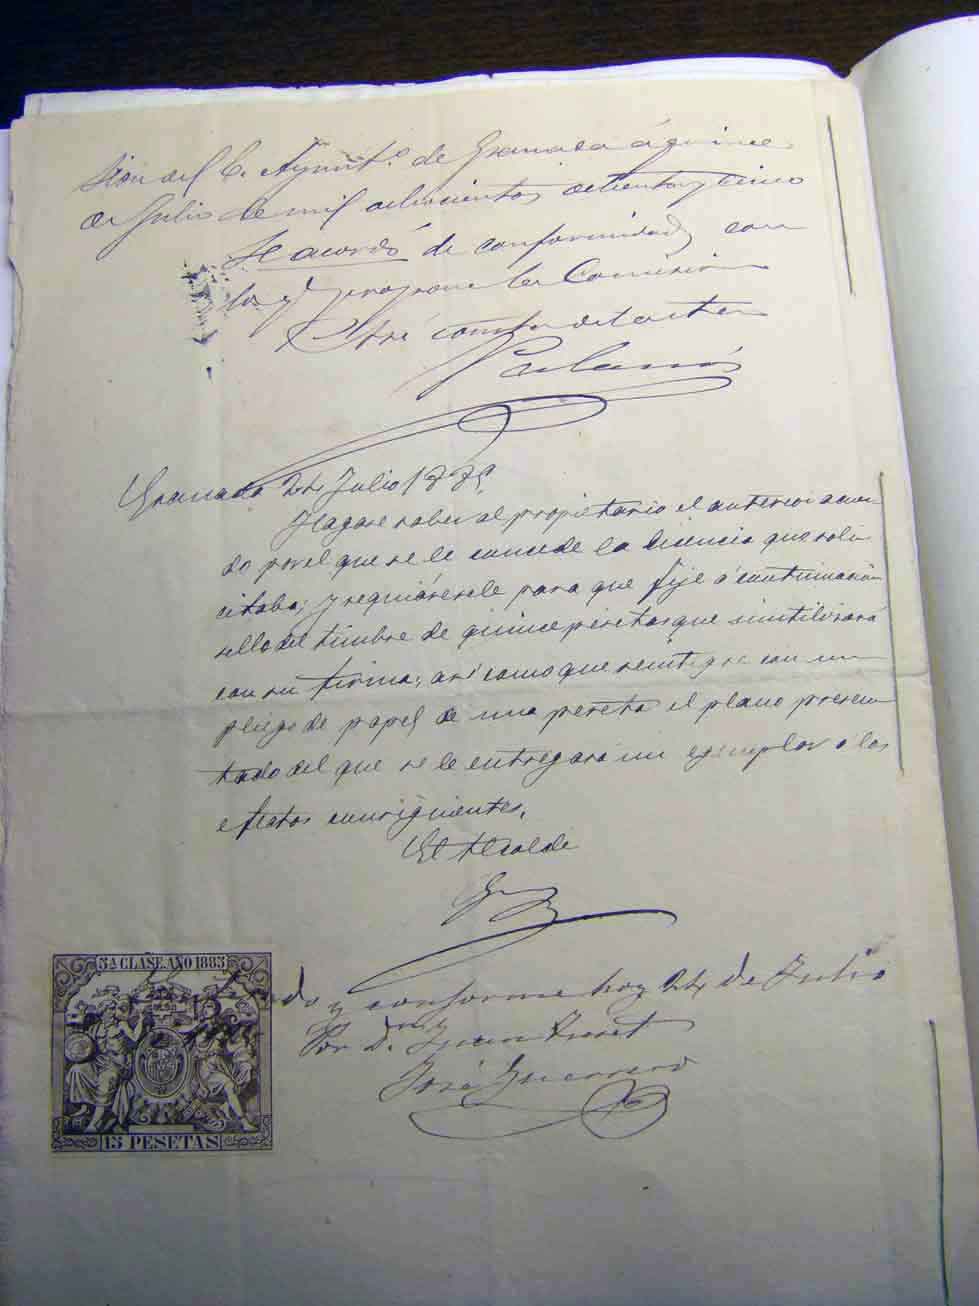 sion del E. Ayuntº. de Granada á quince
de Julio de mil ochocientos ochenta y cinco
Se acordó de conformidad con
lo q. propone la Comision
consta del acta
Granada 24 Julio 1885.
Hagase saber al propietario el anterior acuer
do por el que se le concede la licencia que soli
citaba; y requiérasele para que fije á continuación
sello del timbre de quince pesetas que inutilizará
con su firma; así como que reintegre con un
pliego de papel de una peseta el plano presen
tado del que se le entregará un ejemplar a los
efectos consiguientes.
El Alcalde
5ª CLASE. AÑO 1885
y conforme hoy 24 de Julio
Por D. Juan
José Guerrero
15 PESETAS